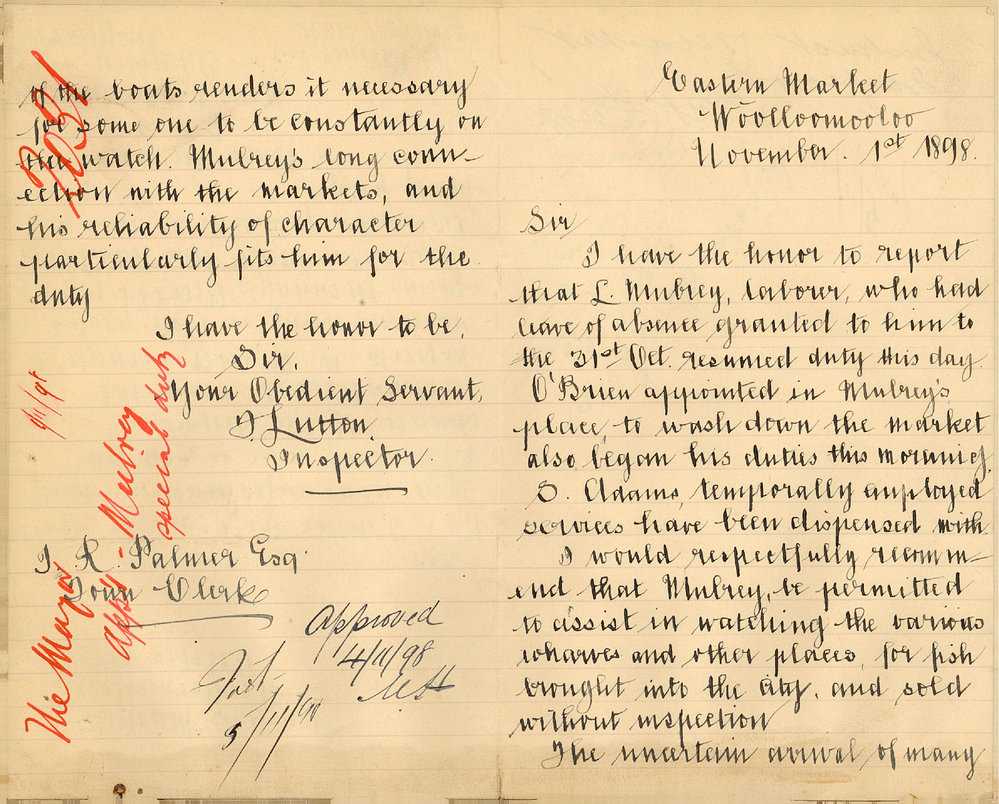 Eastern Market
Woolloomooloo
November. 1st 1898.
Sir
I have the honor to report
that L. Mubrey, laborer, who had
leave of absence granted to him to
the 31st Oct. resumed duty this day.
O'Brien appointed in Mubrey's
place, to wash down the market
also began his duties this morning.
S. Adams, temporally employed
services have been dispensed with.
I would respectfully recomm-
end that Mubrey, be permitted
to assist in watching the various
wharves and other places, for fish
brought into the city, and sold
without inspection
The uncertain arrival of many
of the boats renders it necessary
for some one to be constantly on
the watch. Mubrey's long conn-
ection with the markets, and
his reliability of character
particularly fits him for the
duty
I have the honor to be,
Sir,
Your Obedient Servant,
J Lutton
Inspector.
J. R. Palmer Esq.
Town Clerk
Approved
4/11/98
5/11/98
The Mayor
Mubrey
special duty